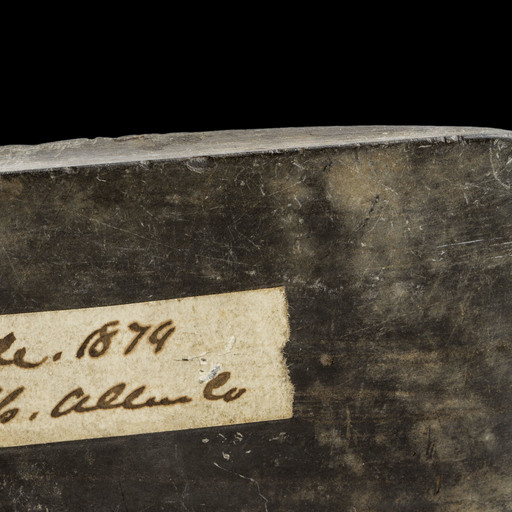 le. 1874
b. Allen Co